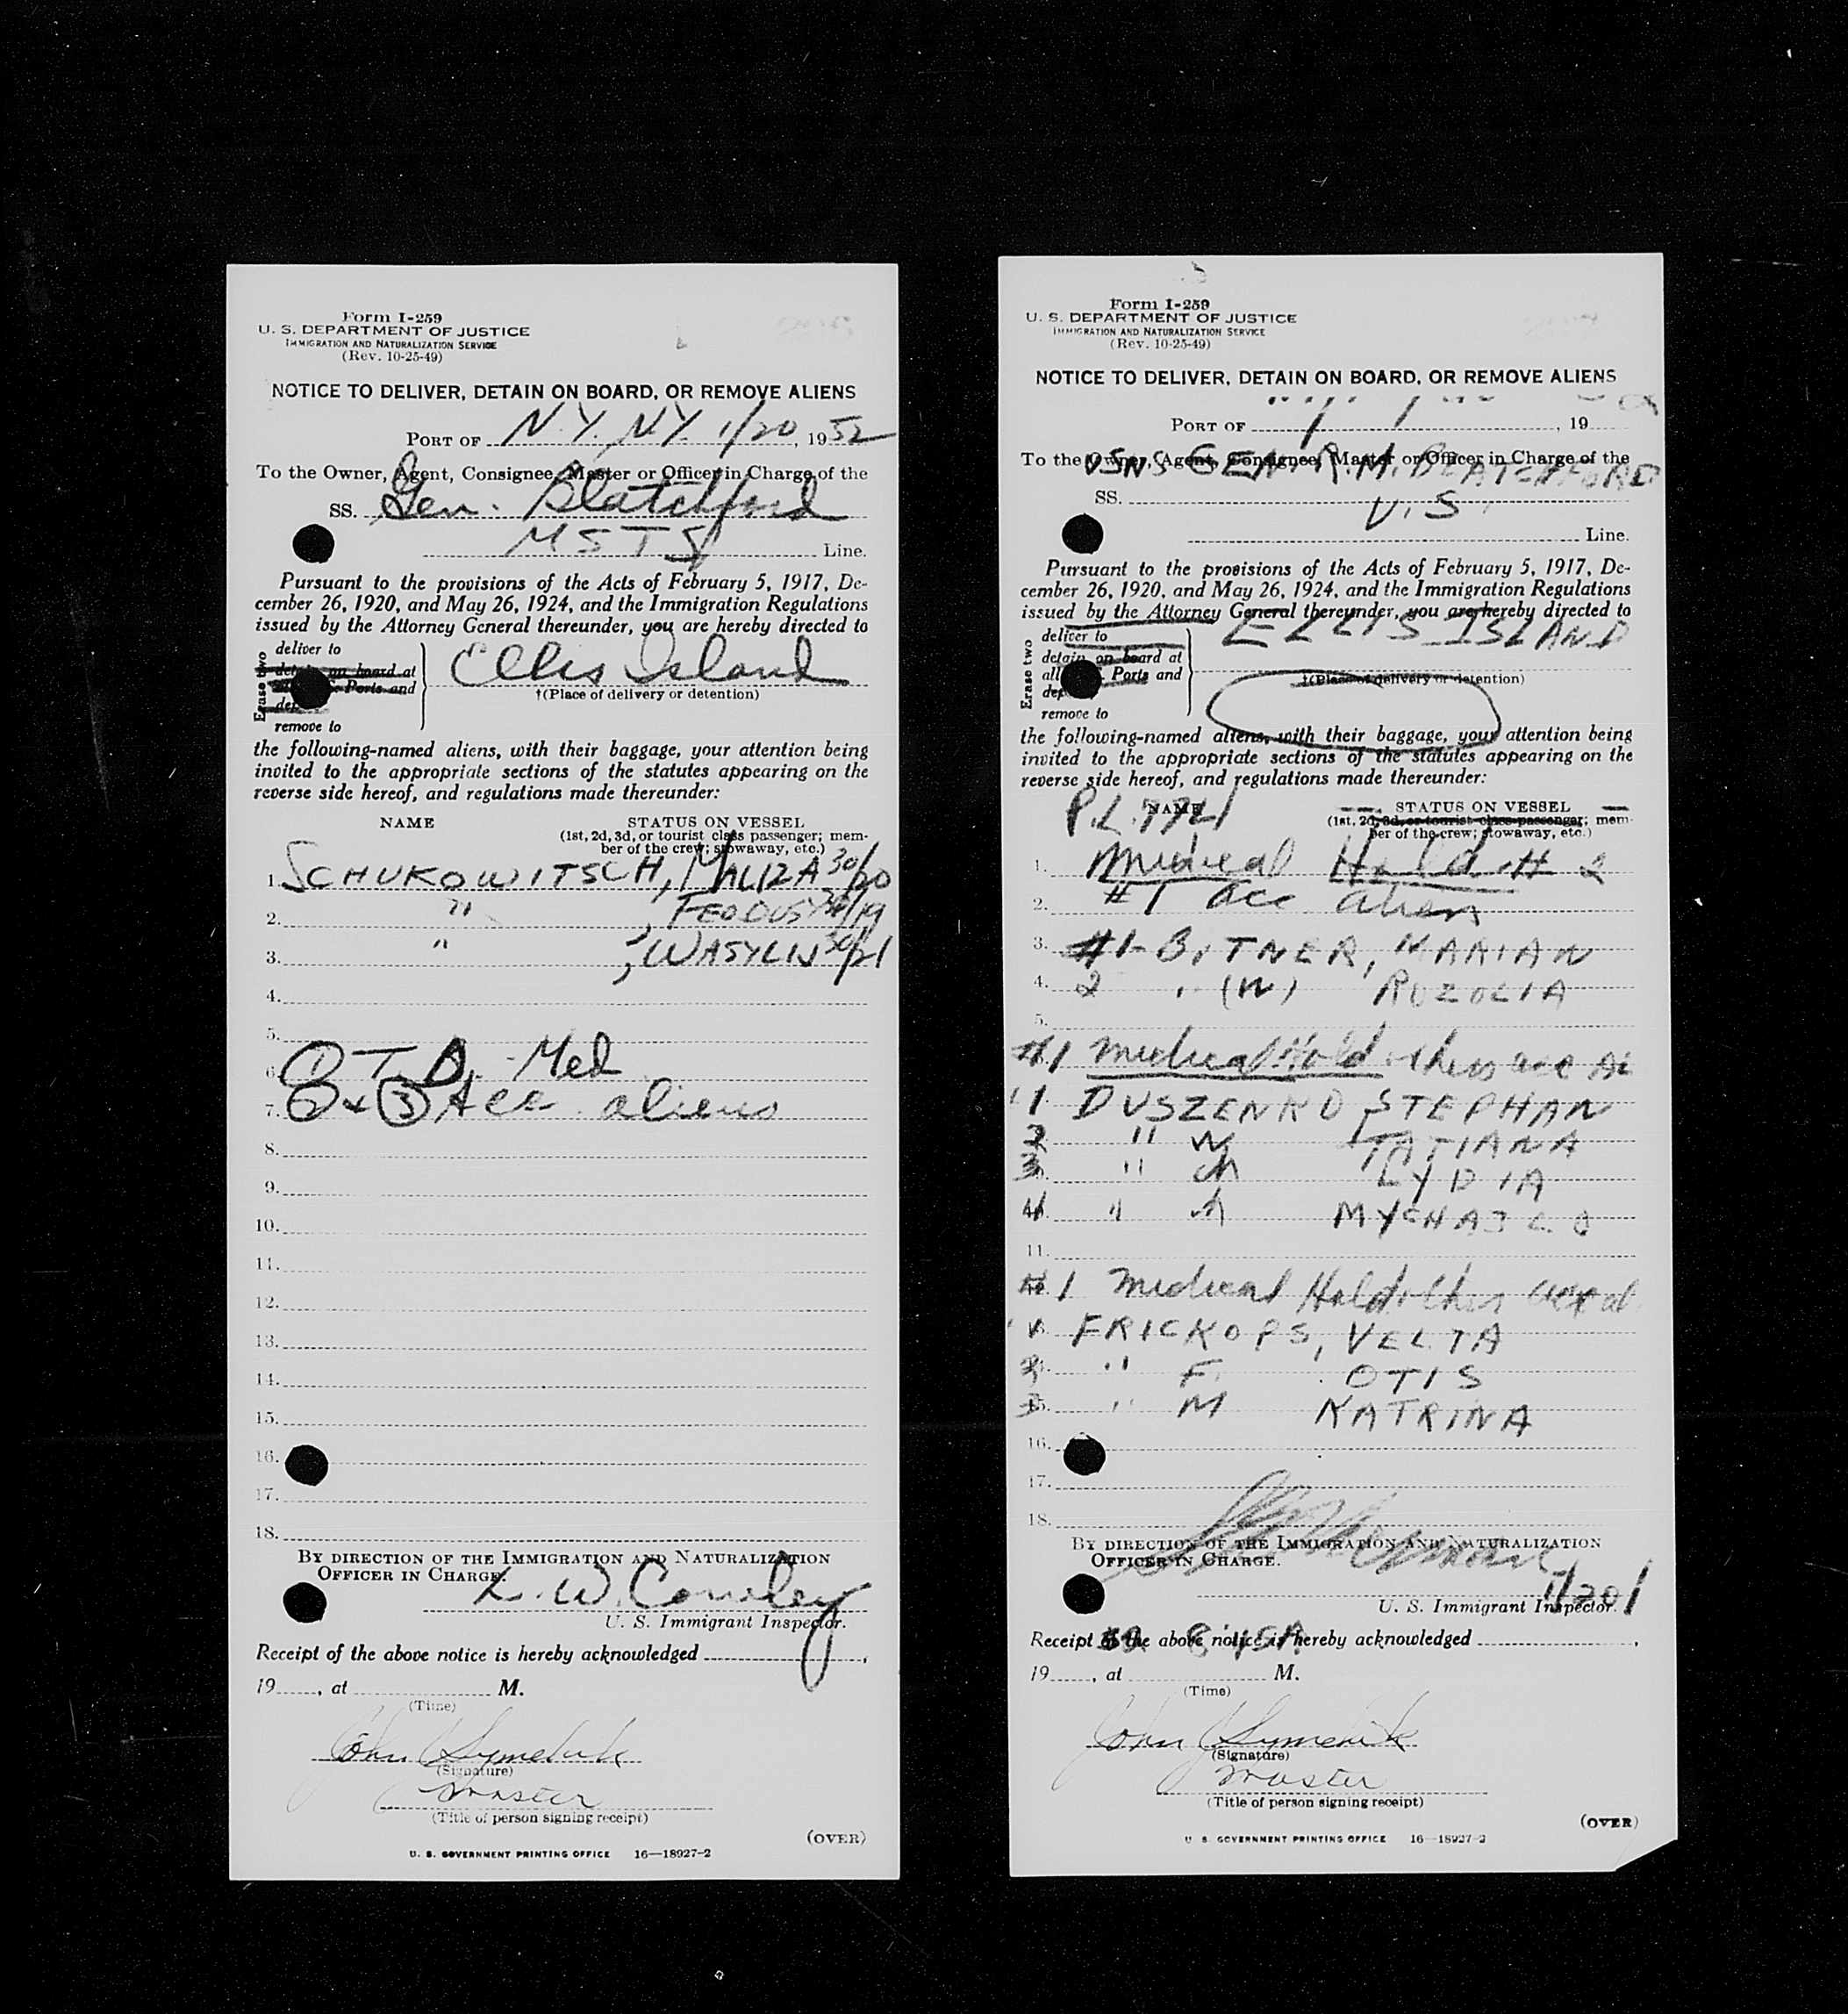 Form I-259
U. S. DEPARTMENT OF JUSTICE
IMMIGRATION AND NATURALIZATION SERVICE
(Rev. 10-25-49)
NOTICE TO DELIVER, DETAIN ON BOARD, OR REMOVE ALIENS
PORT OF N.Y. N.Y. 1/20, 1952
To the Owner, Agent, Consignee, Master or Officer in Charge of the
SS. Gen. Blatchford
MSTS Line.
Pursuant to the provisions of the Acts of February 5, 1917, De-
cember 26, 1920, and May 26, 1924, and the Immigration Regulations
issued by the Attorney General thereunder, you are hereby directed to
Erase two
deliver to
detain on board at
Ports and
remove to
Ellis Island
†(Place of delivery or detention)
the following-named aliens, with their baggage, your attention being
invited to the appropriate sections of the statutes appearing on the
reverse side hereof, and regulations made thereunder:
NAME STATUS ON VESSEL
(1st, 2d, 3d, or tourist class passenger; mem-
ber of the crew; stowaway, etc.)
1. SCHUKOWITSCH, MALIZA 30/20
2. " , FEODUSY /19
3. " , WASYLIJ 30/21
4.
5.
6. ① T.B. - Med
7. ② & ③ Acc aliens
8.
9.
10.
11.
12.
13.
14.
15.
16.
17.
18.
BY DIRECTION OF THE IMMIGRATION AND NATURALIZATION
OFFICER IN CHARGE.
L. W. Conley
U. S. Immigrant Inspector.
Receipt of the above notice is hereby acknowledged ,
19 , at M.
(Time)
John
(Signature)
Master
(Title of person signing receipt)
(OVER)
U. S. GOVERNMENT PRINTING OFFICE 16—18927-2
Form I-259
U. S. DEPARTMENT OF JUSTICE
IMMIGRATION AND NATURALIZATION SERVICE
(Rev. 10-25-49)
NOTICE TO DELIVER, DETAIN ON BOARD, OR REMOVE ALIENS
PORT OF , 19
To the Owner, Agent, Consignee, Master or Officer in Charge of the
USNS GEN. R.M. BLATCHFORD
SS.
U.S.
Line.
Pursuant to the provisions of the Acts of February 5, 1917, De-
cember 26, 1920, and May 26, 1924, and the Immigration Regulations
issued by the Attorney General thereunder, you are hereby directed to
Erase two
deliver to
detain on board at
all Ports and
remove to
ELLIS ISLAND
†(Place of delivery or detention)
the following-named aliens, with their baggage, your attention being
invited to the appropriate sections of the statutes appearing on the
reverse side hereof, and regulations made thereunder:
P.L. 774
NAME STATUS ON VESSEL
(1st, 2d, 3d, or tourist class passenger; mem-
ber of the crew; stowaway, etc.)
1. Medical Hold # 2
2. #1 acc alien
3. #1- BITNER, MARIAN
4. 2 " (W) ROZOLIA
5.
#1 Medical Hold others acc
1 DUSZENKO STEPHAN
2 " W TATIANA
3 " LYDIA
4 " MYCHAJLO
11.
#1 Medical Hold others acc al
1 FRICKOPS, VELTA
2 " F. OTIS
3 " M KATRINA
16.
17.
18.
BY DIRECTION OF THE IMMIGRATION AND NATURALIZATION
OFFICER IN CHARGE.
1/20/
U. S. Immigrant Inspector.
Receipt of the above notice is hereby acknowledged ,
52 8:45A
19 , at M.
(Time)
John
(Signature)
Master
(Title of person signing receipt)
(OVER)
U. S. GOVERNMENT PRINTING OFFICE 16—18927-2